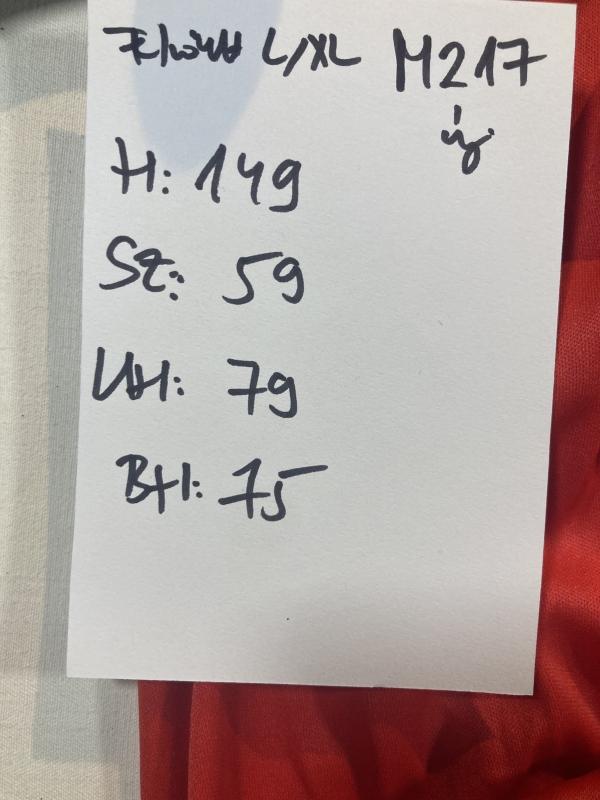 L/XL M217
új
H: 149
SZ: 59
UH: 79
BH: 75